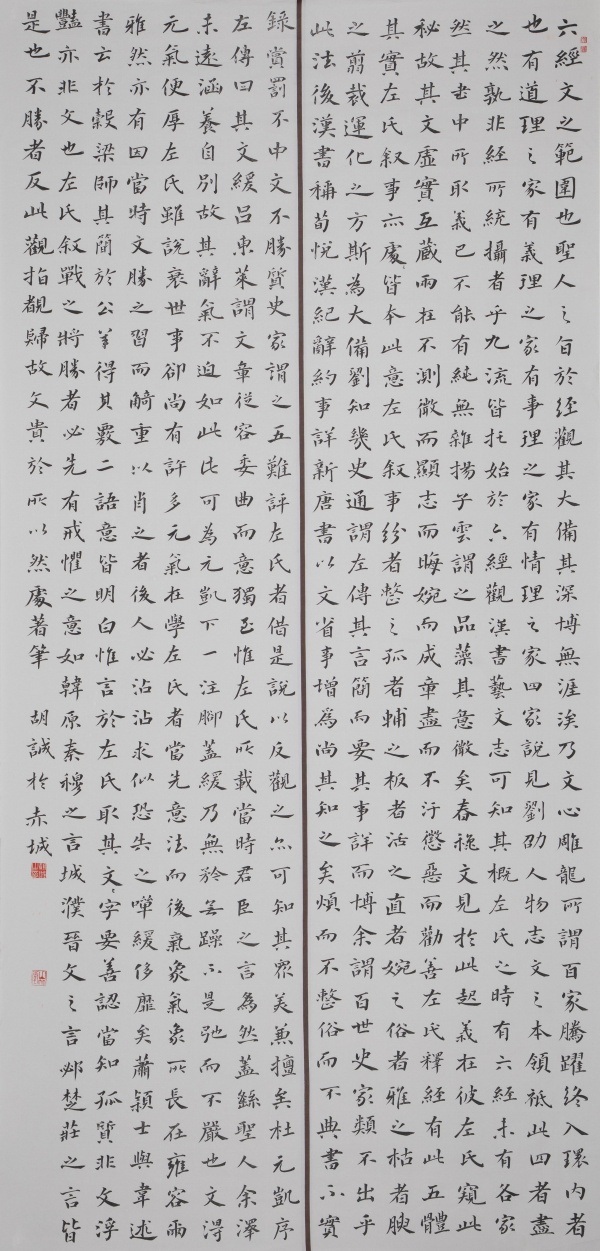 六經文之範圍也聖人之旨於經觀其大備其深博無涯涘乃文心雕龍所謂百家騰躍終入環內者
也有道理之家有義理之家有事理之家有情理之家四家說見劉劭人物志文之本領祗此四者盡
之然孰非經所統攝者乎九流皆托始於六經觀漢書藝文志可知其概左氏之時有六經未有各家
然其書中所取義已不能有純無雜揚子雲謂之品藻其意微矣春秋文見於此起義在彼左氏窺此
秘故其文虛實互藏兩在不測微而顯志而晦婉而成章盡而不汙懲惡而勸善左氏釋經有此五體
其實左氏叙事亦處皆本此意左氏叙事紛者整之孤者輔之板者活之直者婉之俗者雅之枯者腴
之剪裁運化之方斯為大備劉知幾史通謂左傳其言簡而要其事詳而博余謂百世史家類不出乎
此法後漢書稱荀悅漢紀辭約事詳新唐書以文省事增為尚其知之矣煩而不整俗而不典書不實
錄賞罰不中文不勝質史家謂之五難評左氏者借是說以反觀之亦可知其眾美兼擅矣杜元凱序
左傳曰其文緩呂東萊謂文章從容委曲而意獨至惟左氏所載當時君臣之言為然蓋繇聖人余澤
未遠涵養自別故其辭氣不迫如此此可為元凱下一注腳蓋緩乃無矜無躁不是弛而不嚴也文淂
元氣便厚左氏雖說衰世事卻尚有許多元氣在學左氏者當先意法而後氣象氣象所長在雍容爾
雅然亦有因當時文勝之習而觭重以肖之者後人必沾沾求似恐失之嘽緩侈靡矣蕭穎士與韋述
書云於穀梁師其簡於公羊得其覈二語意皆明白惟言於左氏取其文字要善認當知孤質非文浮
豔亦非文也左氏叙戰之將勝者必先有戒懼之意如韓原秦穆之言城濮晉文之言邲楚莊之言皆
是也不勝者反此觀指覩歸故文貴於所以然處著筆 胡誠於赤城